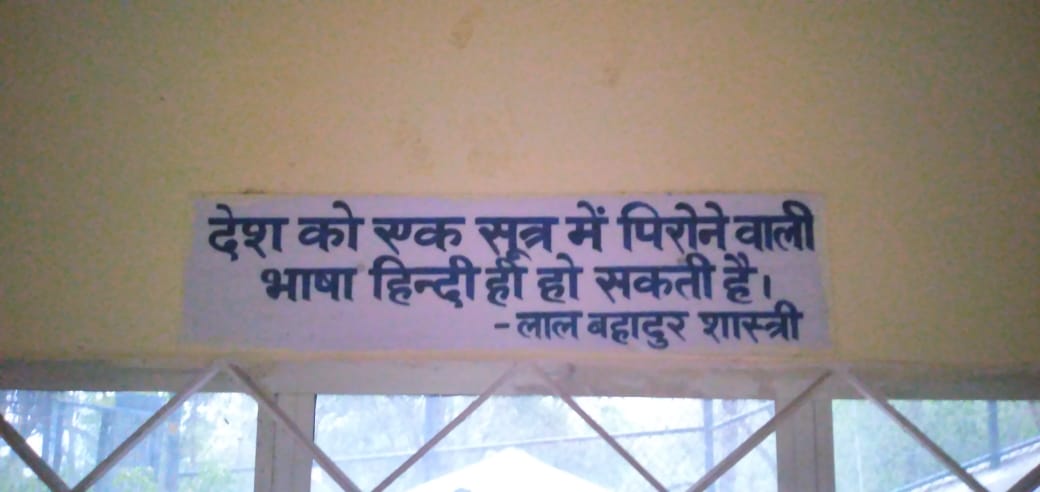 देश को एक सूत्र में पिरोने वाली
भाषा हिन्दी ही हो सकती है।
- लाल बहादुर शास्त्री